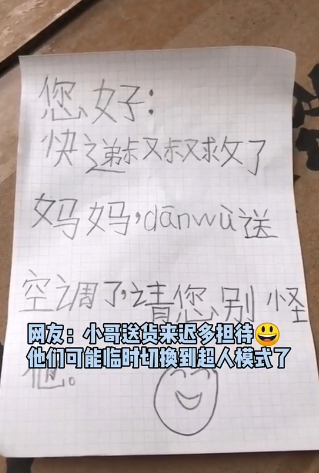 您好:
快递叔叔救了
妈妈,dānwù送
空调了,请您别怪
他。
网友:小哥送货来迟多担待😃
他们可能临时切换到超人模式了